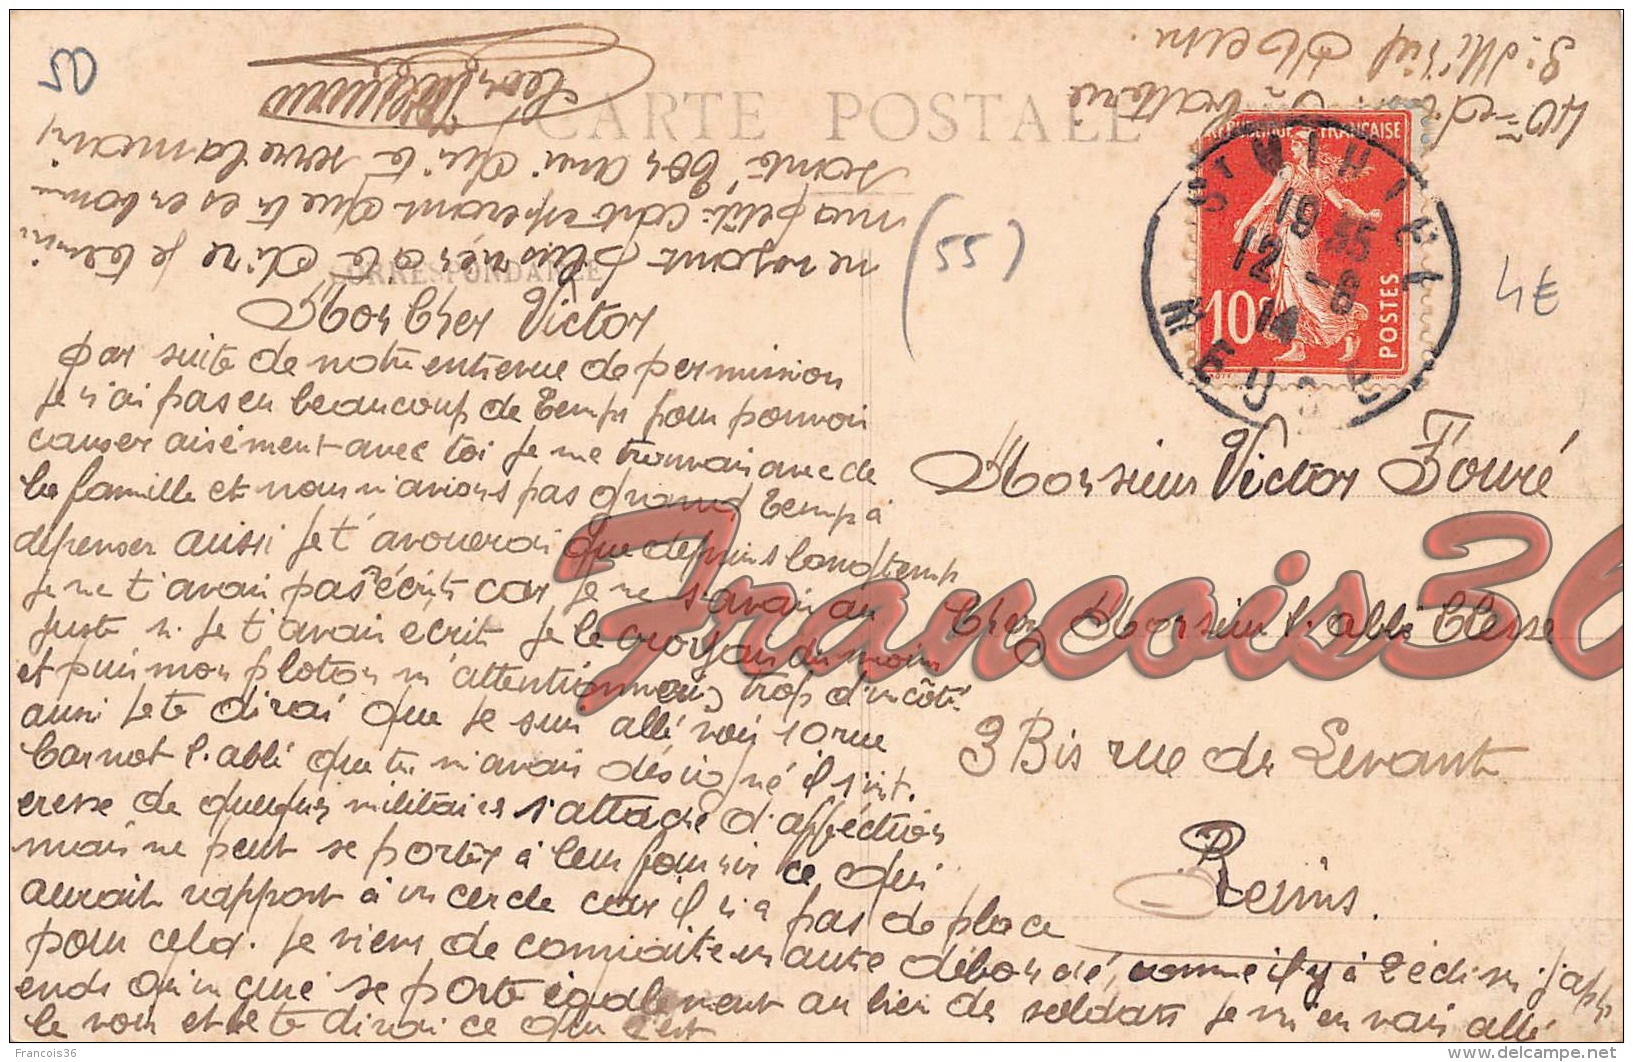 CARTE POSTALE
CORRESPONDANCE
Mon Cher Victor
par suite de notre entrevue de permission
Je n'ai pas eu beaucoup de temps pour pouvoir
causer aisément avec toi Je me trouvais avec de
la famille et nous n'avions pas grand temps à
dépenser aussi Je t'avouerai que depuis longtemps
Je ne t'avais pas écrit car Je ne savais au
juste si Je t'avais écrit Je le croyais du moins
et puis mon ploton m'attentionnais trop d'un côté
aussi Je te dirai que Je suis allé voir 10 rue
Carnot l'abbé que tu m'avais désigné il s'int.
eresse de quelques militaires s'attache d'afféction
mais ne peut se porter à leur fournir ce qui
aurait rapport à un cercle car il n'a pas de place
pour cela. Je viens de connaitre un autre débordé, comme il y à
ends qu'un curé se porte également au lieu de soldats Je m'en vais allé
le voir et Je te dirai ce qu'il c'est
ne voyant plus rien à te dire Je termine
ma petite carte espérant que tu es en bonne
santé Ton ami qui te serre la main
40me 
St Mihiel Meuse.
REPUBLIQUE FRANÇAISE
10c
POSTES
ST MIHIEL
19 35
12 -6
14
MEUSE
(55)
4€
Monsieur Victor Fouré
Chez Monsieur l'abbé Clesse
3 Bis rue de Levant
Reims.
Francois36
Francois36
http://www.delcampe.net